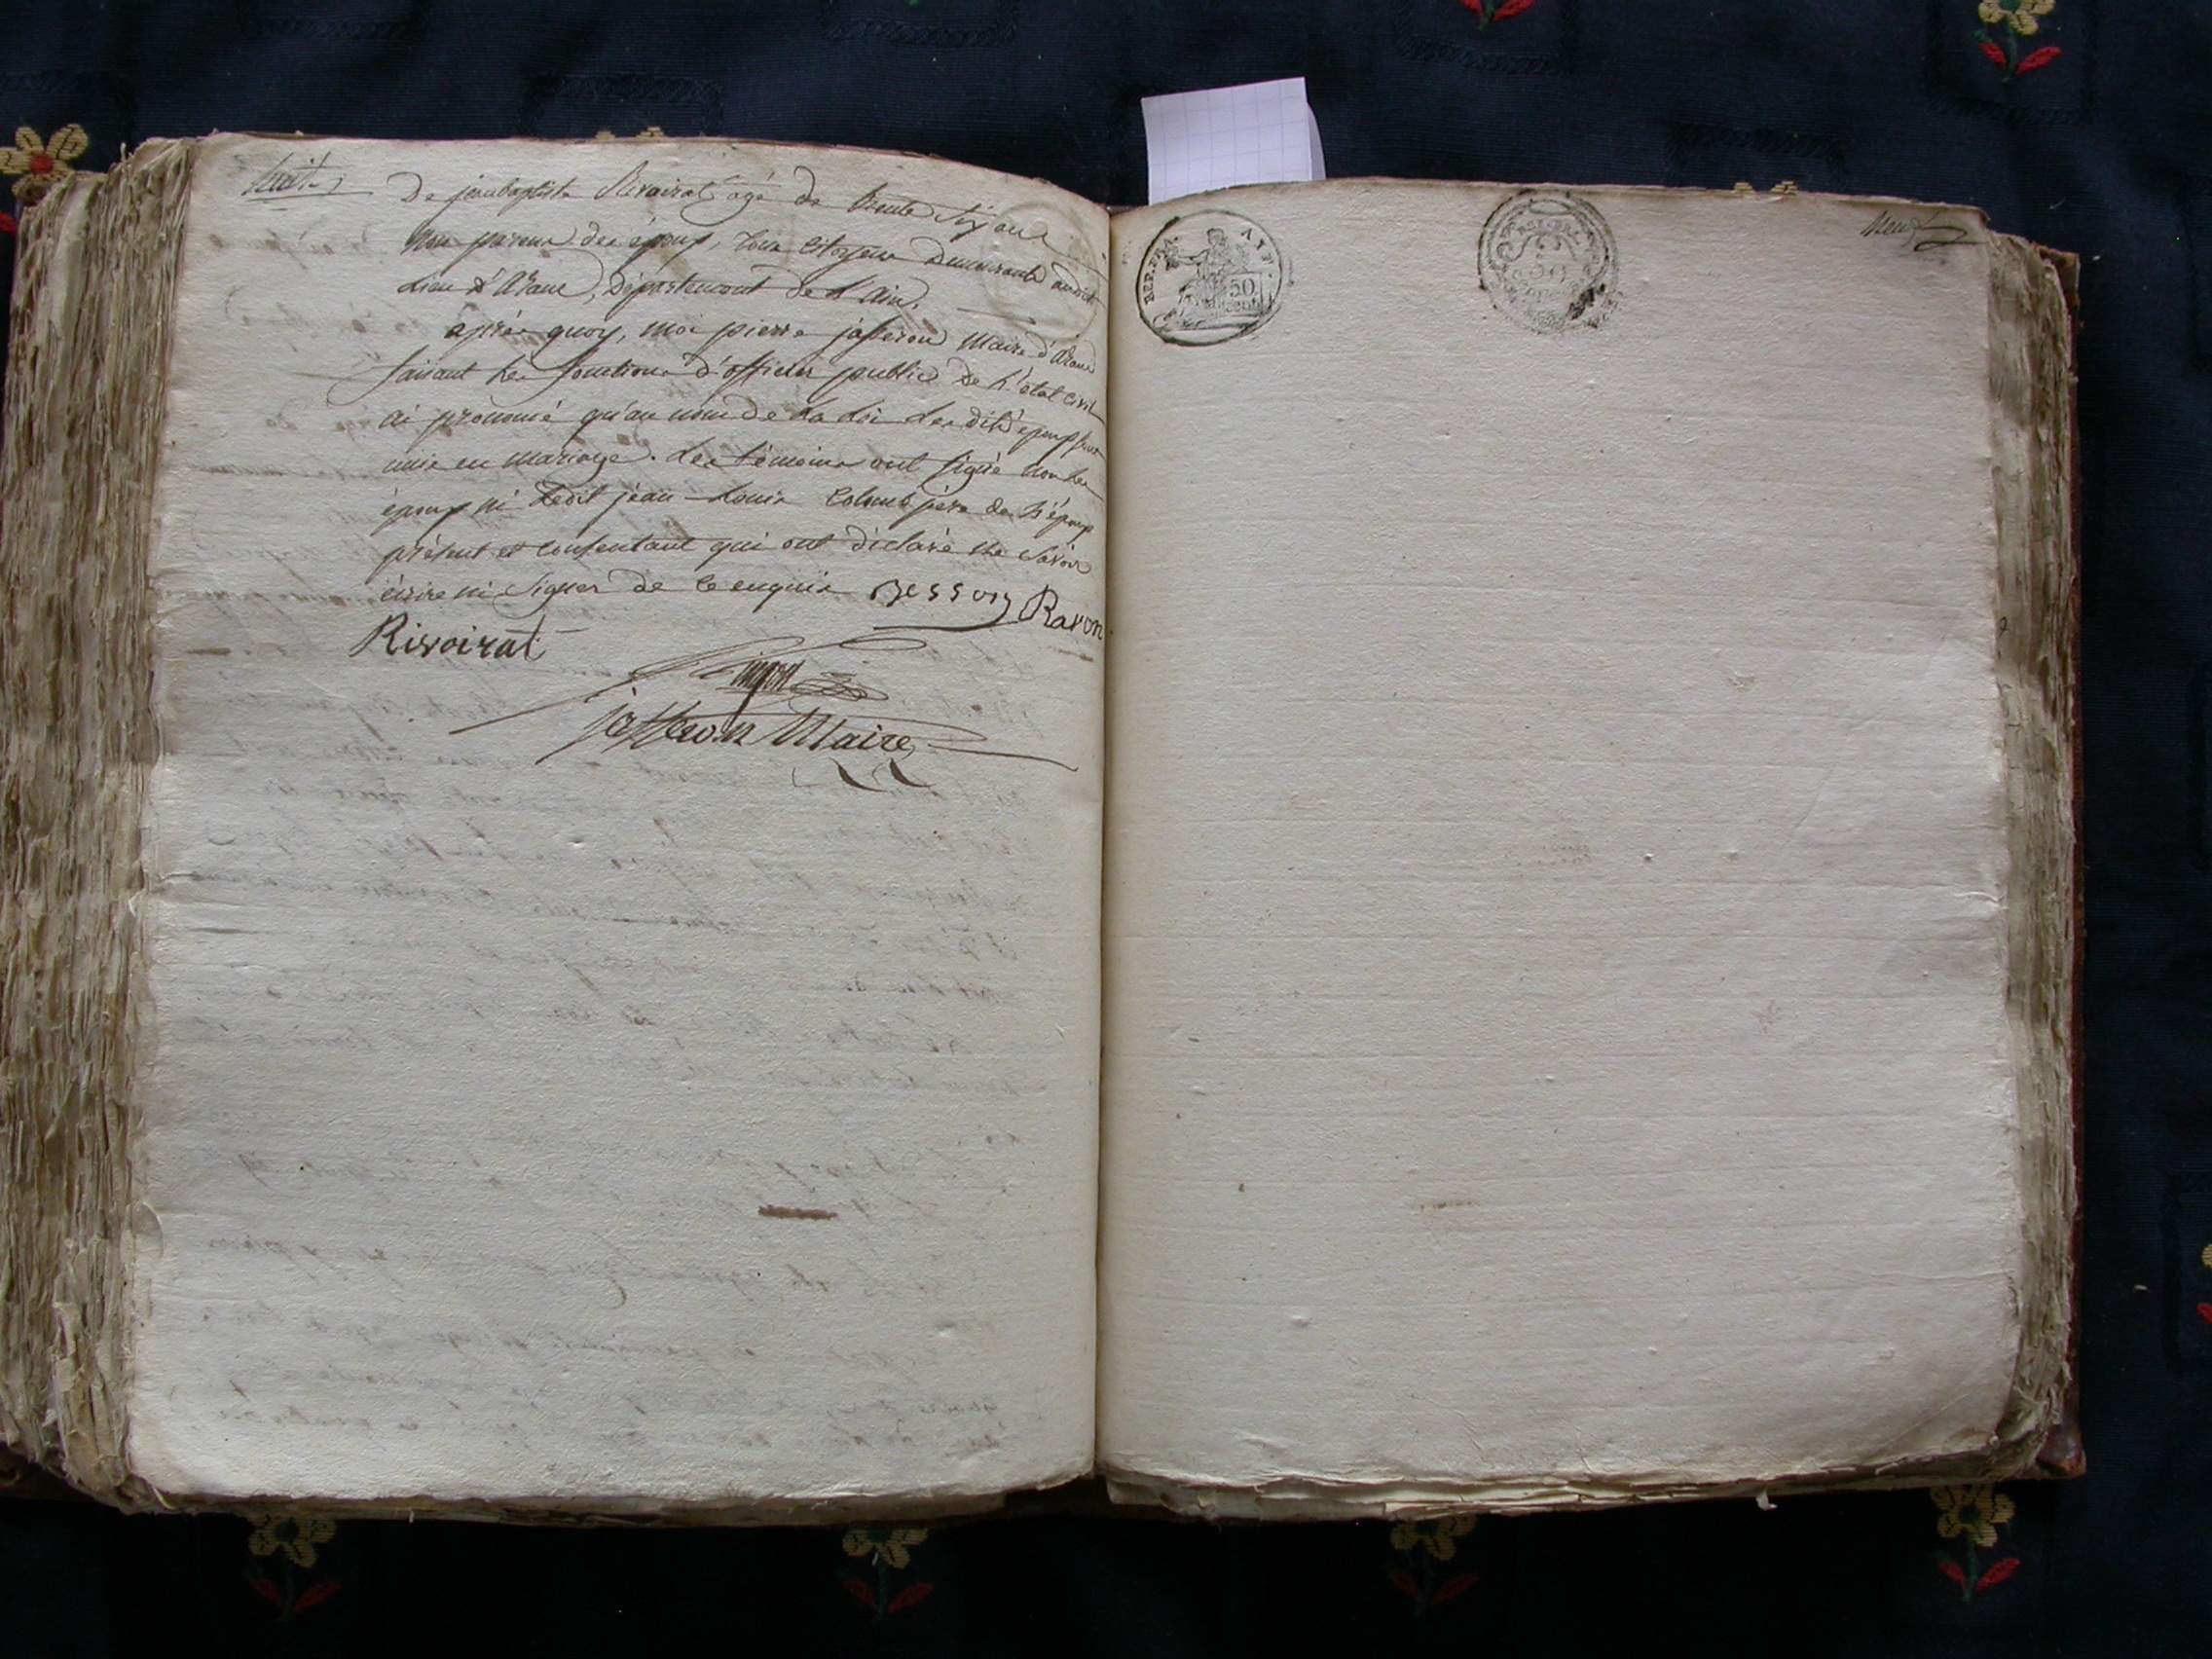 huit
De jeanbaptiste Rivoirat agé de trente six ans
non parens des époux, tous citoyens demeurants audit
lieu d'Arane, département de l'Ain.
après quoy, moi pierre jasseron Maire d'Arane
faisant les fonctions d'officier public de l'état civil
ai prononcé qu'au nom de la loi les dits époux sont
unis en mariage. les témoins ont signé non les
époux ni ledit jean-Louis Colomb père de l'époux
présent et consentant qui ont déclaré ne savoir
écrire ni signer de ce enquis Besson Ravon
Rivoirat
jasseron Maire
REP. FRA. AYF.
50
CENT.
neuf